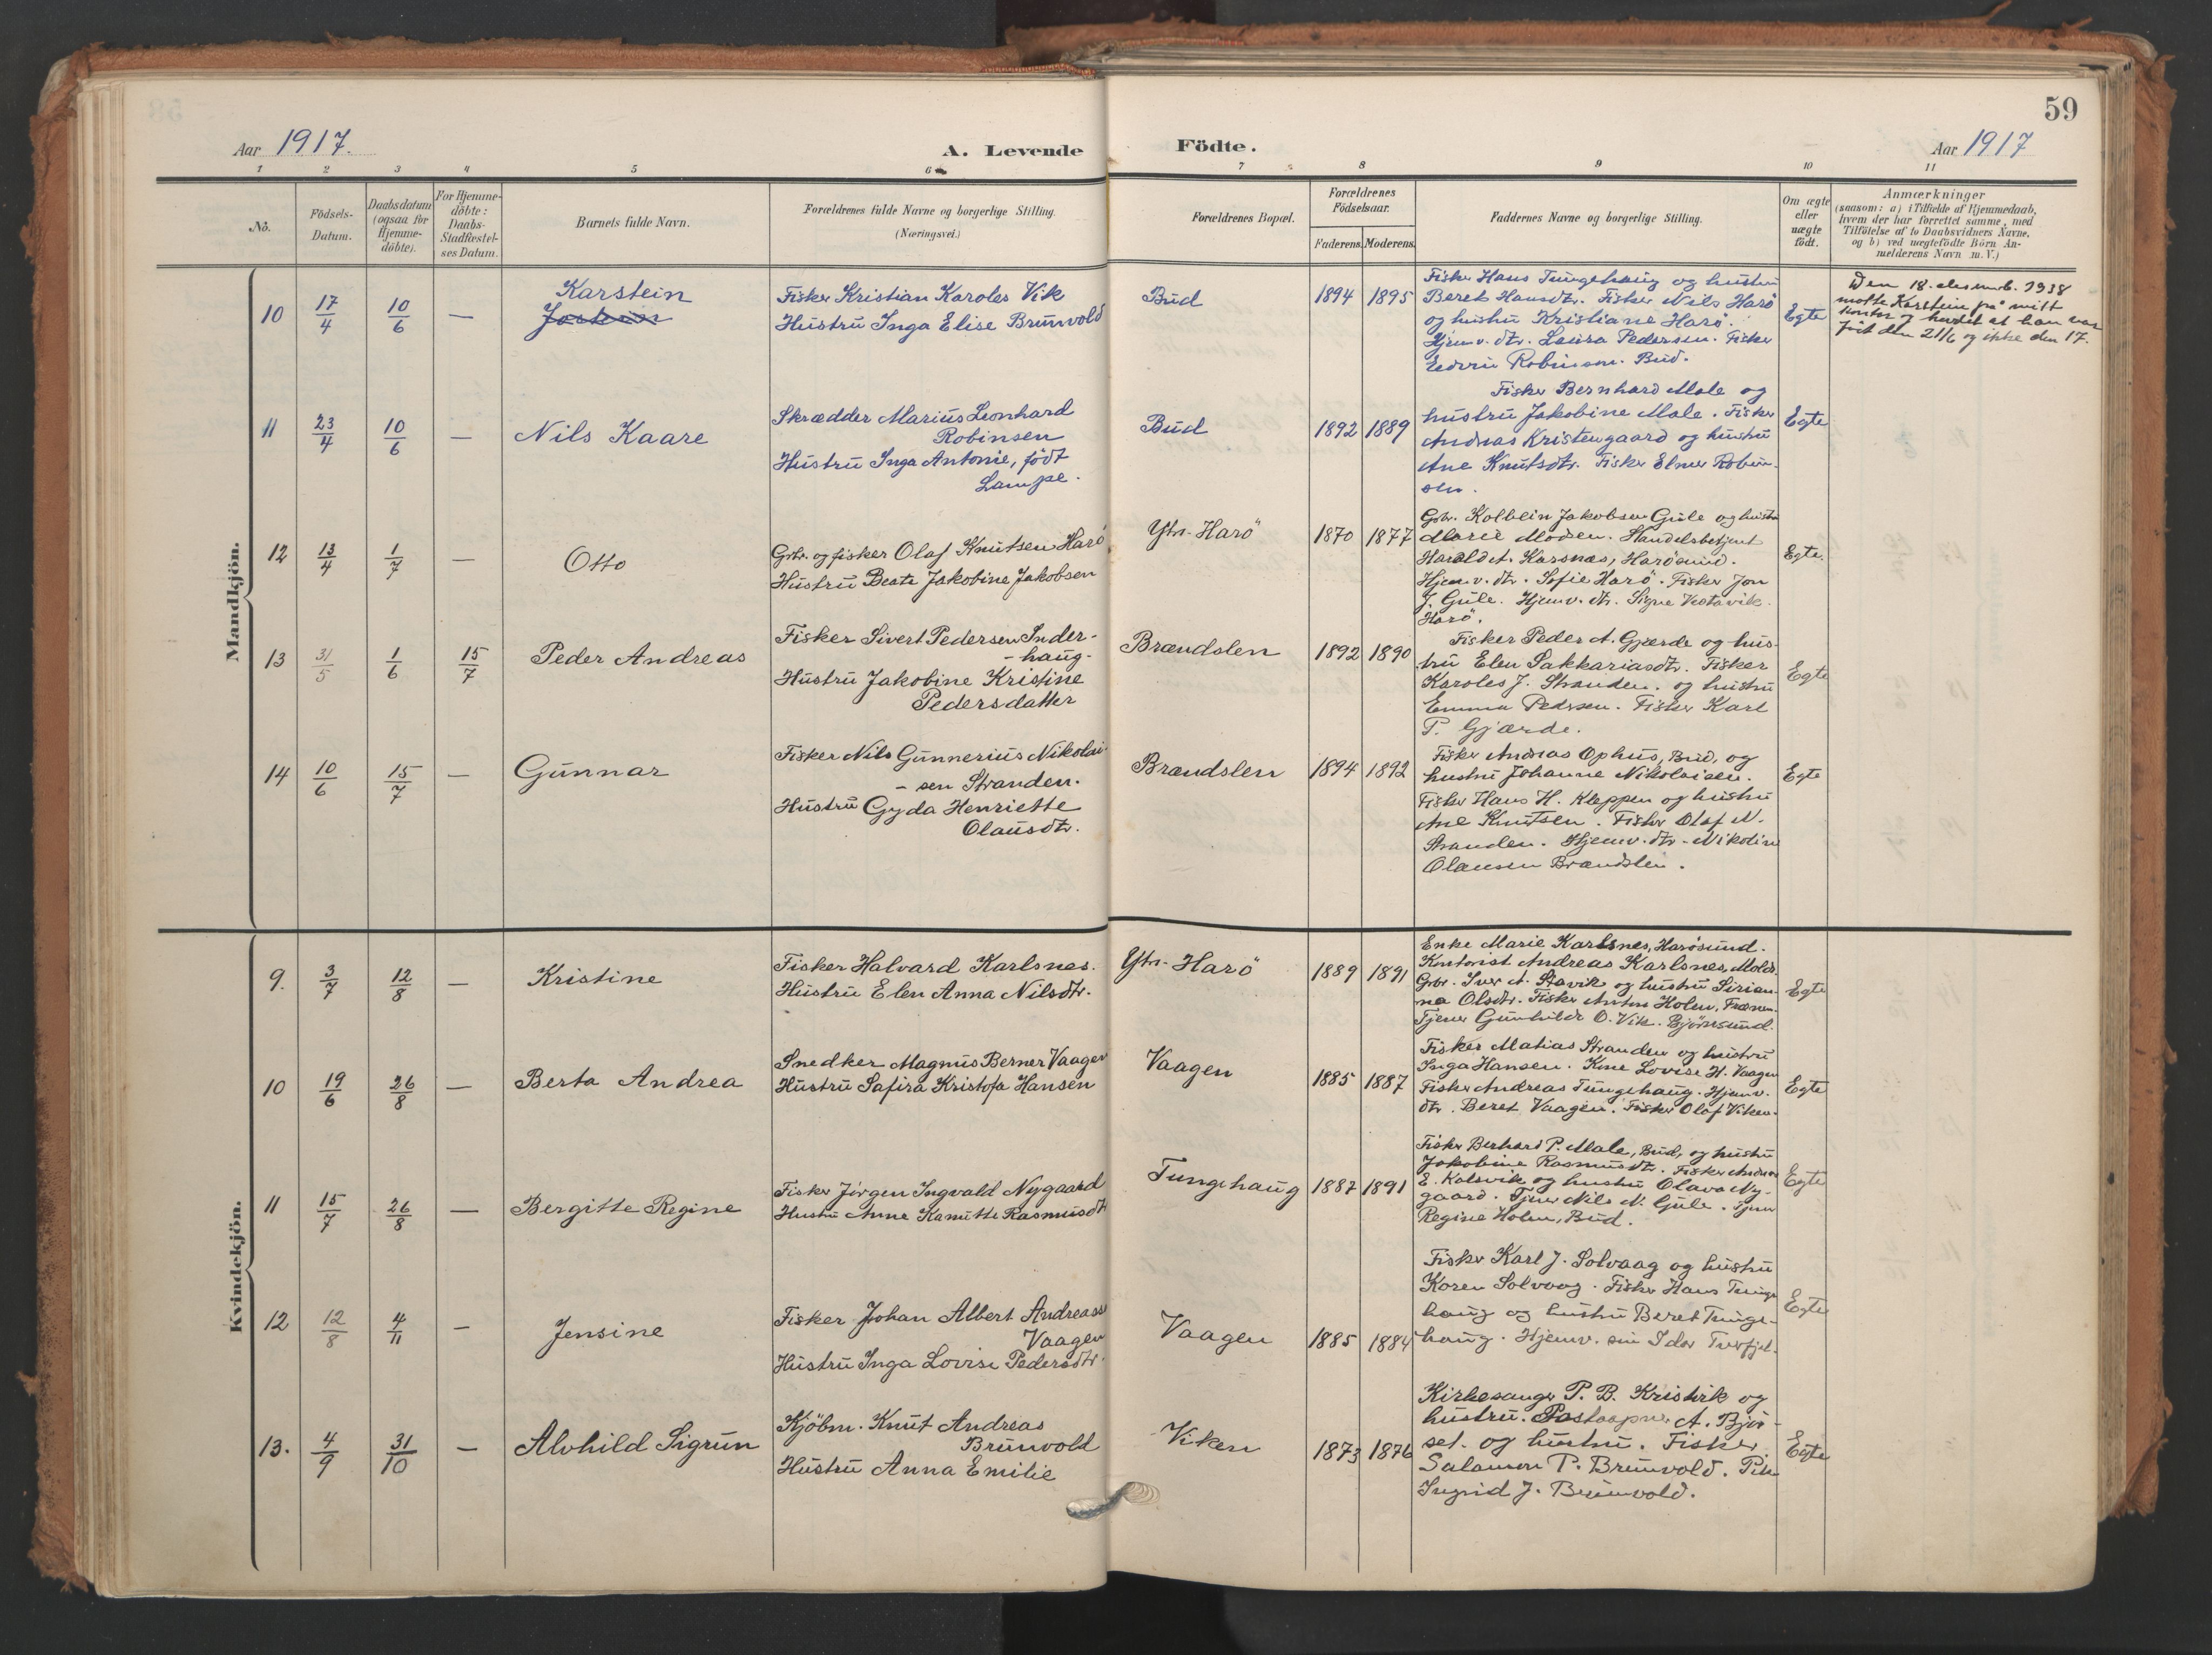 59
Aar 1917.
A. Levende
Födte.
Aar 1917
1 2 3 4 5 6 7 8 9 10 11
No.
Födsels-
Datum.
Daabsdatum
(ogsaa for
Hjemme-
döbte).
For Hjemme-
döbte:
Daabs-
Stadfæstel-
ses Datum.
Barnets fulde Navn.
Forældrenes fulde Navne og borgerlige Stilling.
(Næringsvei.)
Forældrenes Bopæl.
Forældrenes
Födselsaar.
Faderens.
Moderens.
Faddernes Navne og borgerlige Stilling.
Om ægte
eller
uægte
födt.
Anmærkninger
(saasom: a) i Tilfælde af Hjemmedaab,
hvem der har forrettet samme, med
Tilföielse af to Daabsvidners Navne,
og b) ved uægtefödte Börn An-
melderens Navn m. V.)
Mandkjön.
10 17/4 10/6 —
Karstein
Fisker Kristian Karoles Vik
Hustru Inga Elise Brunvold
Bud
1894 1895
Fisker Hans Tungehaug og hustru
Beret Hansdtr. Fisker Nils Harö
og hustru Kristiane Harö.
Hjemv. dtr. Laura Pedersen. Fisker
Robinson. Bud.
Egte
Den 18. desemb. 1938
møtte Karstein på mitt
kontor og hevdet at han var
født den 21/6 og ikke den 17.
11 23/4 10/6 —
Nils Kaare
Skrædder Marius Leonhard
Robinsen
Hustru Inga Antonie, født
Lampe.
Bud
1892 1889
Fisker Bernhard Male og
hustru Jakobine Male. Fisker
Andreas Kristengaard og hustru
Ane Knutsdtr. Fisker Elmer Robin-
sen.
Egte
12 13/4 1/7 —
Otto
Grbr. og fisker Olaf Knutsen Harö
Hustru Beate Jakobine Jakobsen
Ytre Harö
1870 1877
Gbr. Kolbein Jakobsen Gule og hustru
Marie Modsen. Handelsbetjent
Harald A. Karsnes, Harösund.
Hjemv. dtr. Sofie Harö. Fisker Jon
J. Gule. Hjemv. dtr. Signe Vestavik
Harö.
Egte.
13 31/5 1/6 15/7
Peder Andreas
Fisker Sivert Pedersen Inder-
- haug -
Hustru Jakobine Kristine
Pedersdatter
Brændslen
1892 1890
Fisker Peder A. Gjærde og hus-
tru Elen Sakkariasdtr. Fisker
Karoles J. Stranden. og hustru
Emma Pedersen. Fisker Karl
P. Gjærde.
Egte
14 10/6 15/7 —
Gunnar
Fisker Nils Gunnerius Nikolai-
- sen Stranden.
Hustru Gyda Henriette
Olausdtr.
Brændslen
1894 1892
Fisker Andreas Ophus, Bud, og
hustru Johanne Nikolaisen.
Fisker Hans H. Kleppen og hustru
Ane Knutsen. Fisker Olaf N.
Stranden. Hjemv. dtr. Nikoline
Olausen Brændslen.
Egte
Kvindekjön.
9. 3/7 12/8 —
Kristine
Fisker Halvard Karlsnes.
Hustru Elen Anna Nilsdtr.
Ytre Harö
1889 1891
Enke Marie Karlsnes, Harösund.
Kontorist Andreas Karlsnes, Molde.
Grbr. Iver A. Stavik og hustru Sirian-
na Olsdtr. Fisker Anton Holen, Fræna.
Tjener Gunhilde O. Vik. Björnsund.
Egte
10 19/6 26/8 —
Berta Andrea
Snedker Magnus Berner Vaagen
Hustru Safira Kristofa Hansen
Vaagen
1885 1887
Fisker Matias Stranden og hustru
Inga Hansen. Kone Lovise H. Vaagen
Fisker Andreas Tungehaug. Hjemv.
dtr. Beret Vaagen. Fisker Olaf Viken.
Egte
11 15/7 26/8 —
Bergitte Regine
Fisker Jörgen Ingvald Nygaard
Hustru Anne Kanutte Rasmusdtr
Tungehaug
1887 1891
Fisker Berhard P. Male, Bud, og hustru
Jakobine Rasmusdtr. Fisker Andreas
E. Kolsvik og hustru Olava Ny-
gaard. Tjener Nils N. Gule. Tjener
Regine Holen, Bud.
Egte
12 12/8 4/11 —
Jensine
Fisker Johan Albert Andreass
Vaagen
Hustru Inga Lovise Pedersdtr.
Vaagen
1885 1884
Fisker Karl J. Solvaag og hustru
Karen Solvaag. Fisker Hans Tunge-
haug og hustru Beret Tunge-
haug. Hjemv. sin Idar Tverfjel.
Egte
13. 4/9 31/10 —
Alvhild Sigrun
Kjöbm. Knut Andreas
Brunvold
Hustru Anna Emilie
Viken
1873 1876
Kirkesanger P. B. Kristvik og
hustru. Postaapner A. Björ-
set. og hustru. Fisker
Salamon P. Brunvold. Pike
Ingrid J. Brunvold.
Egte